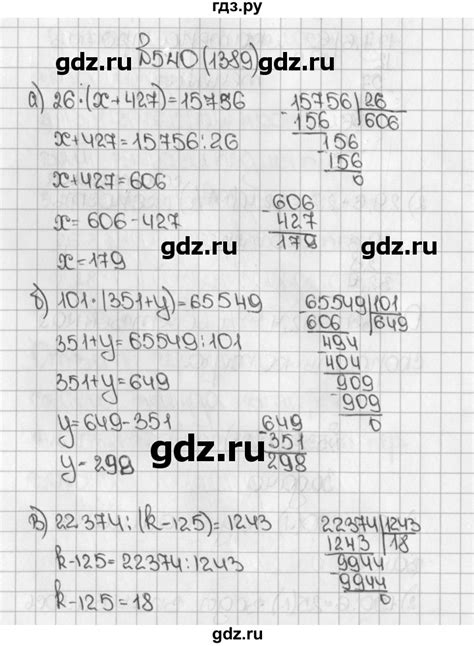 гдз.ру
№540 (1389)
gdz.ru gdz.ru
а) 26·(x+427)=15756
x+427=15756:26
x+427=606
x=606-427
x=179
15756 26
156 606
156
156
0
606
- 427
179
gdz.ru gdz.ru
б) 101·(351+y)=65549
351+y=65549:101
351+y=649
y=649-351
y=298
65549 101
606 649
494
404
909
909
0
649
- 351
298
gdz.ru gdz.ru
в) 22374:(k-125)=1243
k-125=22374:1243
k-125=18
22374 1243
1243 18
9944
9944
0
gdz.ru gdz.ru
гдз.ру